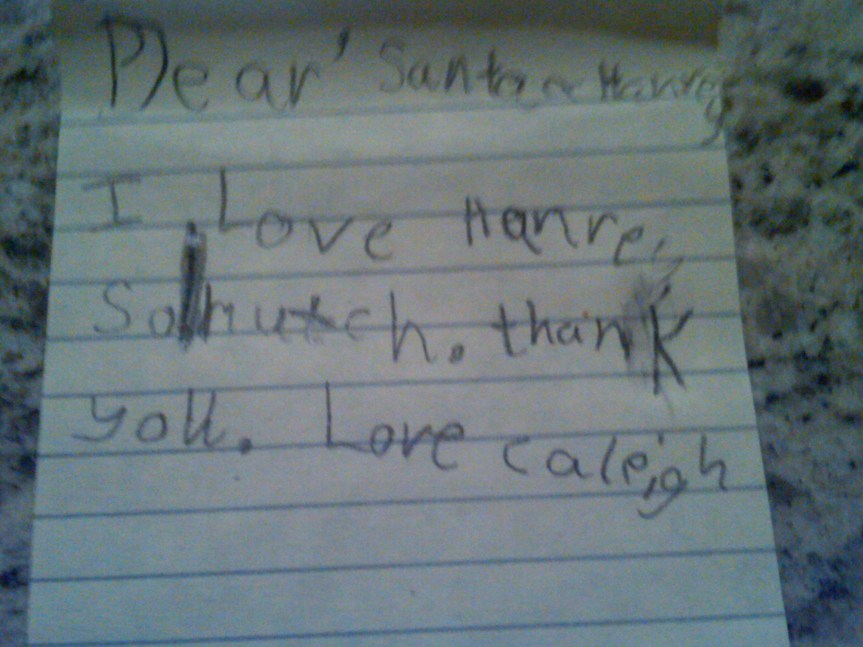 Dear' Santa Hanrey
I Love Hanrey
So mutch. thank
you. Love caleigh